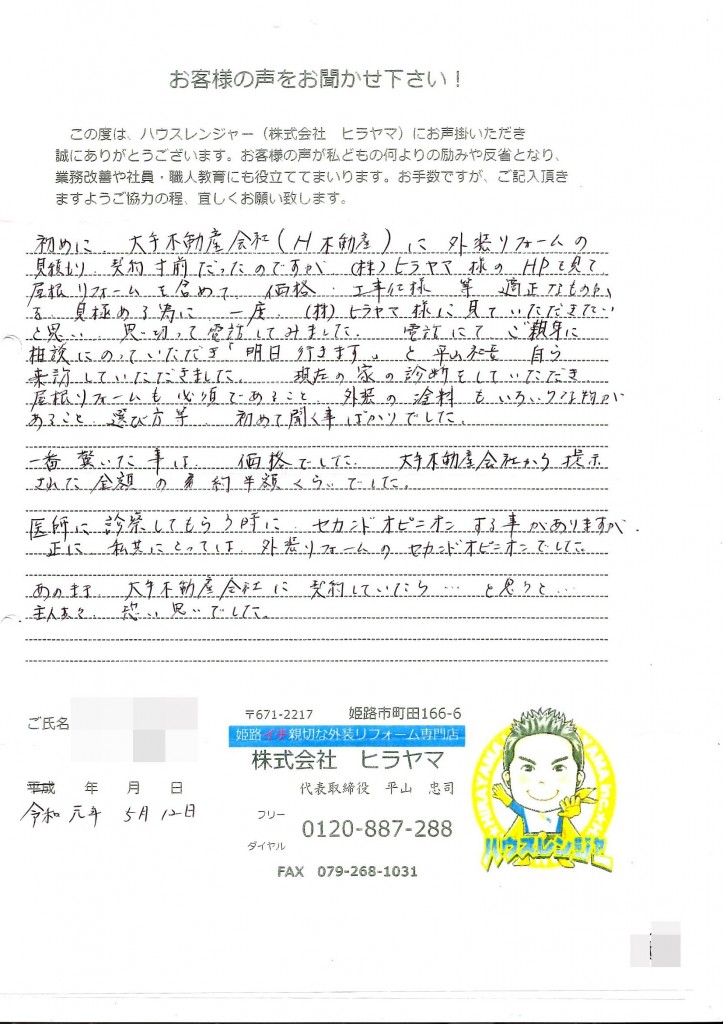 お客様の声をお聞かせ下さい！
この度は、ハウスレンジャー（株式会社　ヒラヤマ）にお声掛いただき
誠にありがとうございます。お客様の声が私どもの何よりの励みや反省となり、
業務改善や社員・職人教育にも役立ててまいります。お手数ですが、ご記入頂き
ますようご協力の程、宜しくお願い致します。
初めに、大手不動産会社（H不動産）に外装リフォームの
見積り、契約寸前だったのですが（株）ヒラヤマ様のHPを見て、
屋根リフォームを含めて、価格・工事仕様　等　適正なものか
を　見極める為に　一度、（株）ヒラヤマ様に見ていただきたい
と思い、思い切って電話してみました。　電話にて　ご親身に
相談にのっていただき「明日行きます。」と平山社長　自ら
来訪していただきました。　現在の家の診断をしていただき
屋根リフォームも必須であること、外装の塗料もいろいろな物が
あること、選び方等、初めて聞く事ばかりでした。
一番驚いた事は、価格でした。大手不動産会社から提示
された金額の約半額くらいでした。
医師に診察してもらう時に、セカンドオピニオンする事がありますが、
正に私共にとっては、外装リフォームのセカンドオピニオンでした。
あのまま、大手不動産会社に契約していたら…と思うと…
主人共々、恐い思いでした。
ご氏名
平成　年　月　日
令和　元年　5月　12日
〒671-2217　姫路市町田166-6
姫路イチ親切な外装リフォーム専門店
株式会社　ヒラヤマ
代表取締役　平山　忠司
フリー
ダイヤル
0120-887-288
FAX　079-268-1031
ハウスレンジャー